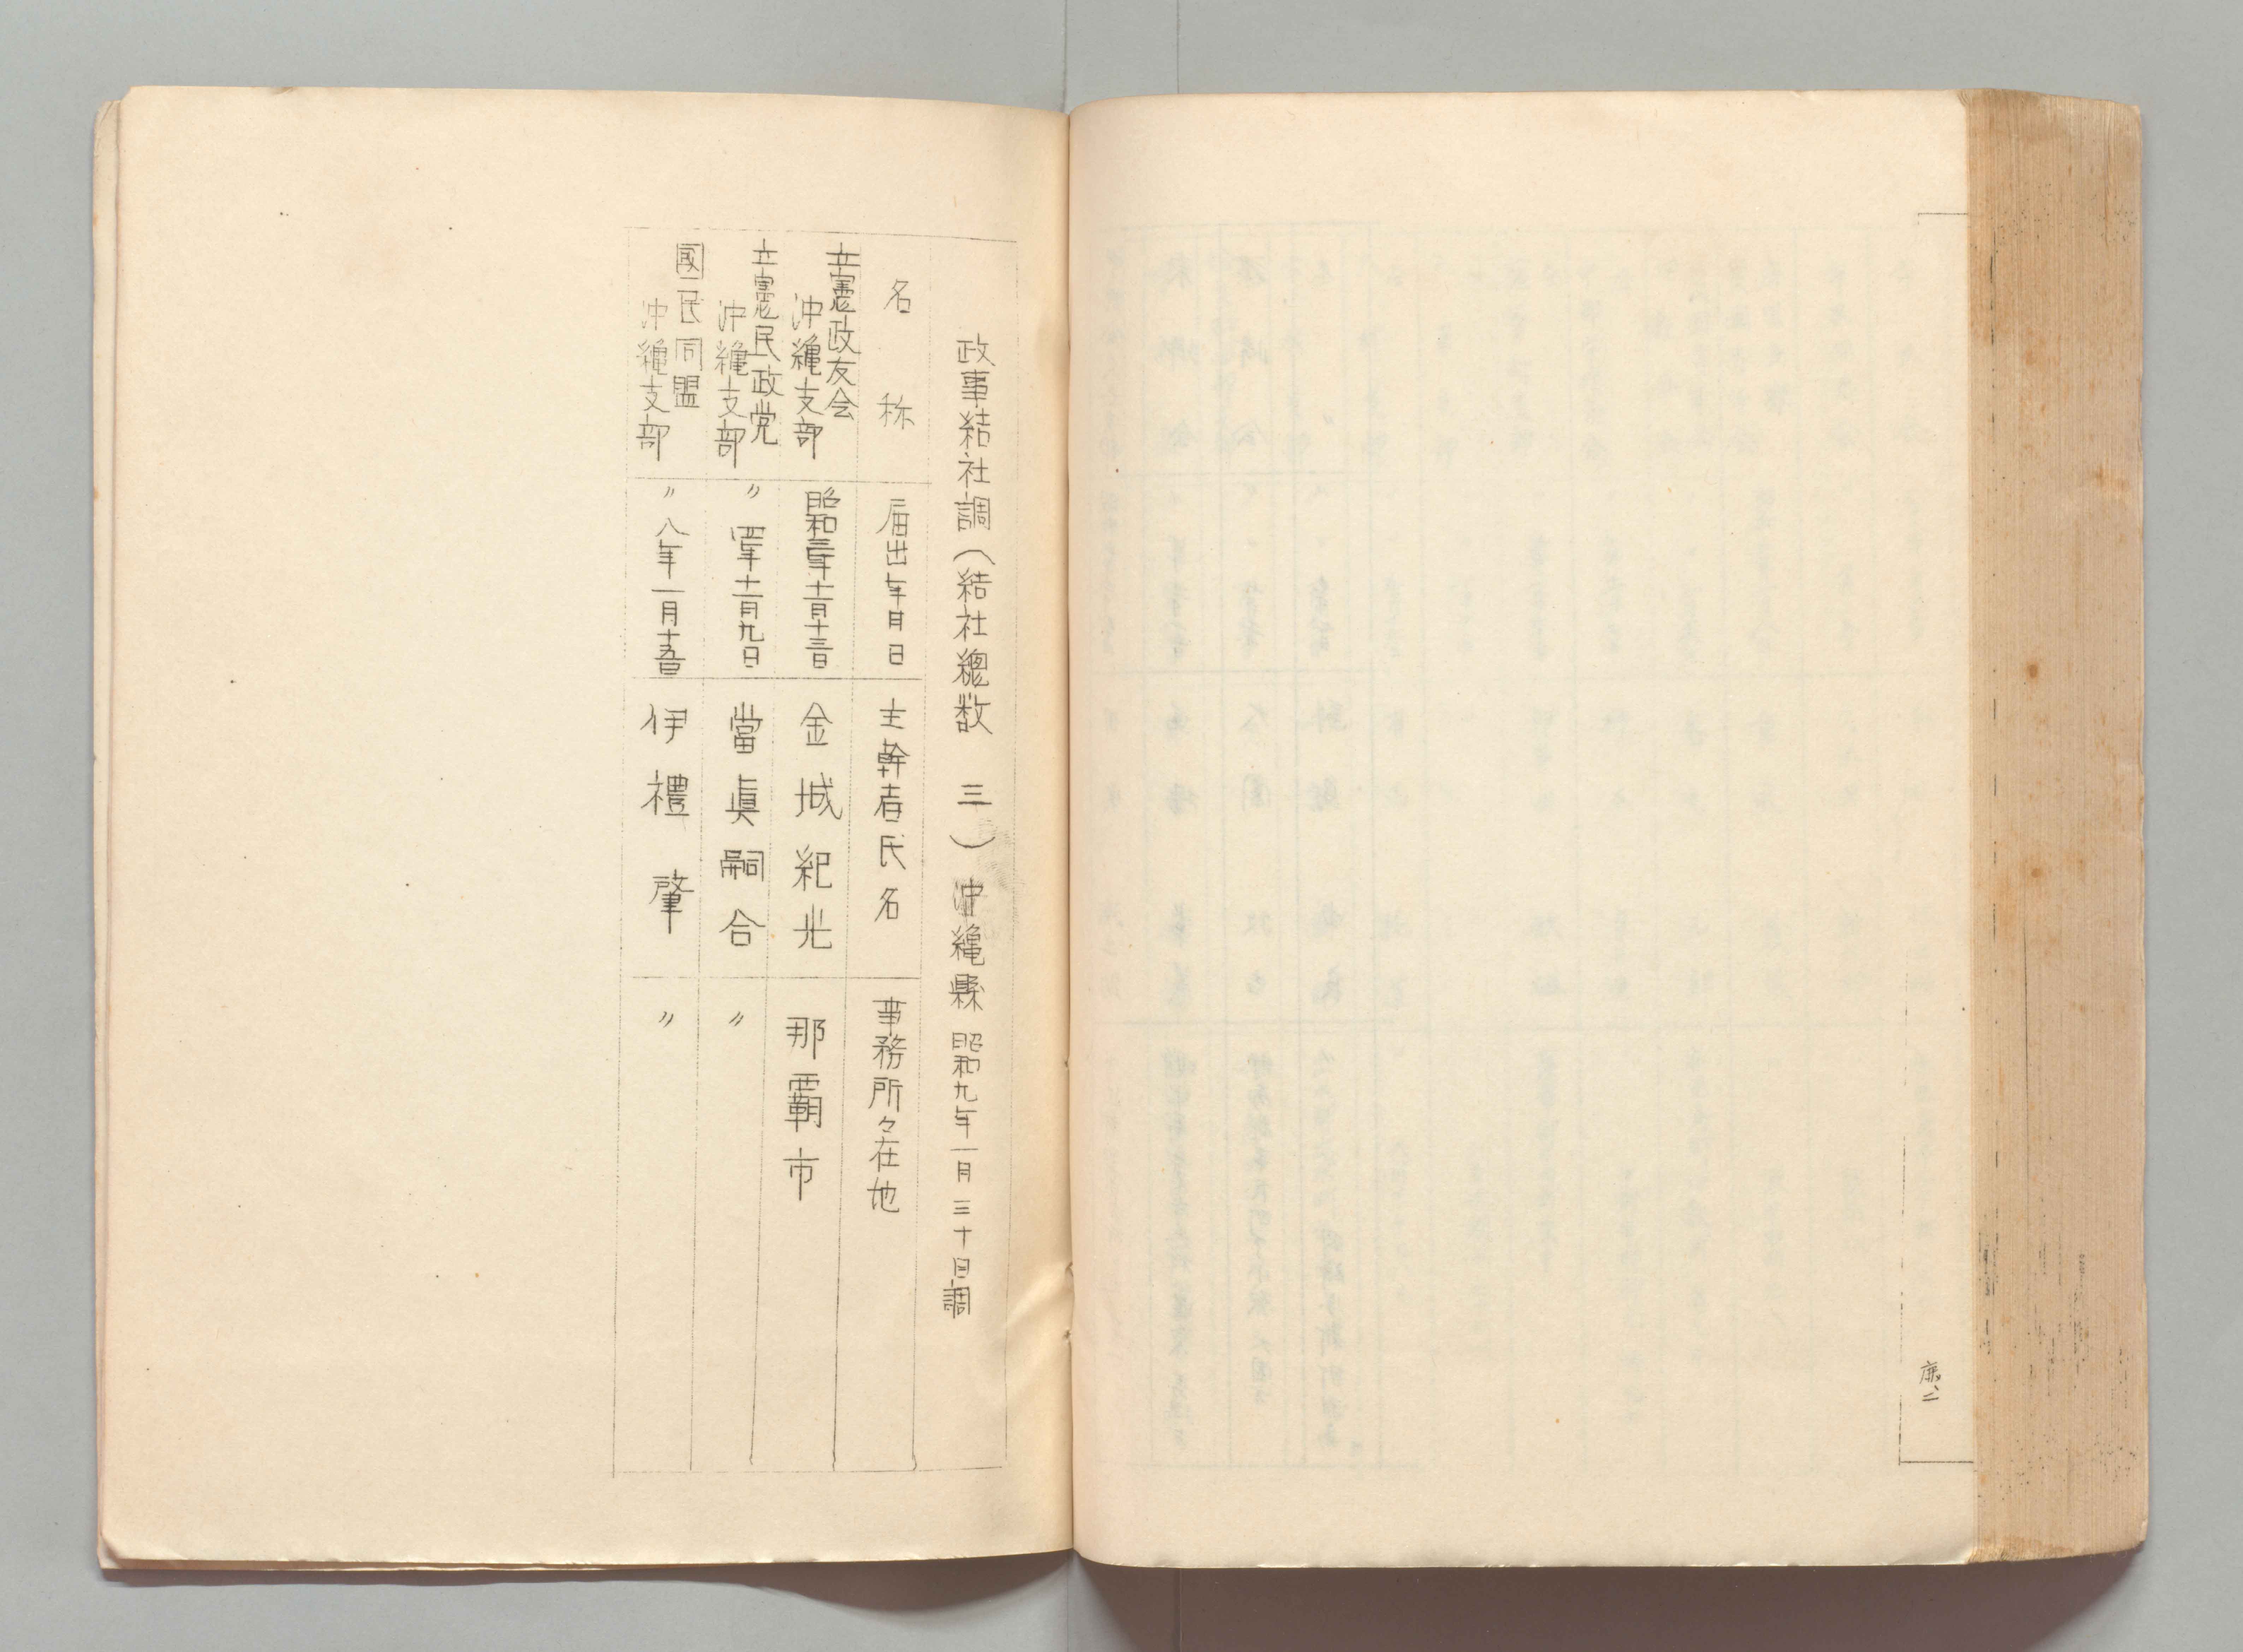 鹿、二
政事結社調（結社總数　三）沖縄縣　昭和九年一月三十日調
名称　届出年月日　主幹者氏名　事務所々在地
立憲政友会
沖縄支部　昭和三年十二月十三日　金城紀光　那覇市
立憲民政党
沖縄支部　〃四年十二月九日　當眞嗣合　〃
國民同盟
沖縄支部　〃八年一月十五日　伊禮肇　〃